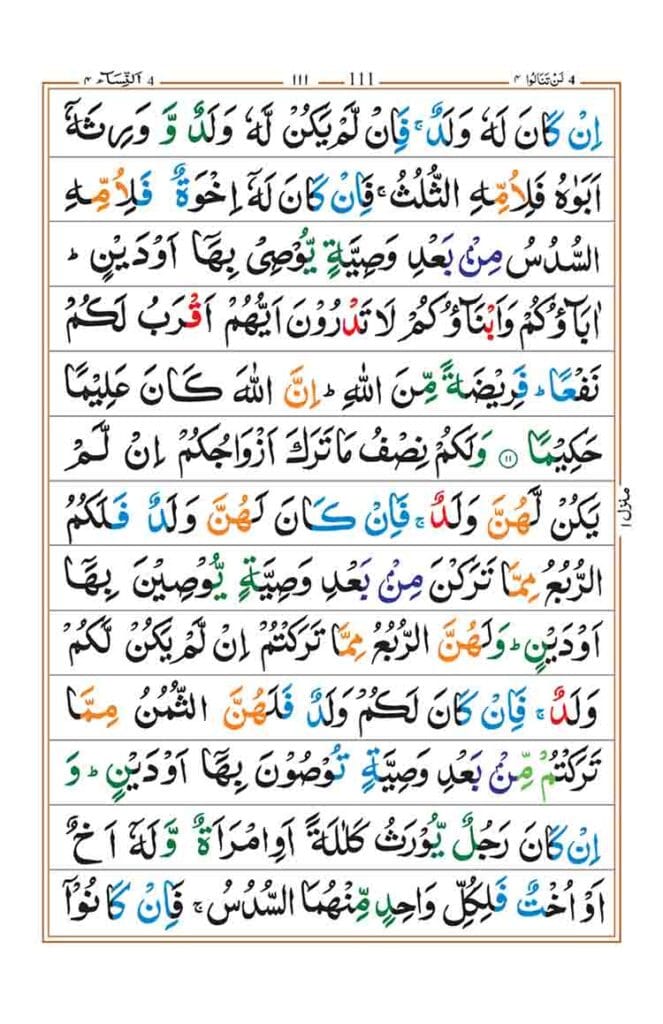 لَنْ تَنَالُوا ٤ 4 111 ١١١ 4 اَلنِّسَآء ٤
اِنْ كَانَ لَهٗ وَلَدٌ ۚ فَاِنْ لَّمْ يَكُنْ لَّهٗ وَلَدٌ وَّ وَرِثَهٗۤ
اَبَوٰهُ فَلِاُمِّهِ الثُّلُثُ ۚ فَاِنْ كَانَ لَهٗۤ اِخْوَةٌ فَلِاُمِّهِ
السُّدُسُ مِنْۢ بَعْدِ وَصِيَّةٍ يُّوْصِيْ بِهَاۤ اَوْ دَيْنٍ ؕ
اٰبَآؤُكُمْ وَاَبْنَآؤُكُمْ لَا تَدْرُوْنَ اَيُّهُمْ اَقْرَبُ لَكُمْ
نَفْعًا ؕ فَرِيْضَةً مِّنَ اللّٰهِ ؕ اِنَّ اللّٰهَ كَانَ عَلِيْمًا
حَكِيْمًا ١١ وَلَكُمْ نِصْفُ مَا تَرَكَ اَزْوَاجُكُمْ اِنْ لَّمْ
يَكُنْ لَّهُنَّ وَلَدٌ ۚ فَاِنْ كَانَ لَهُنَّ وَلَدٌ فَلَكُمُ
الرُّبُعُ مِمَّا تَرَكْنَ مِنْۢ بَعْدِ وَصِيَّةٍ يُّوْصِيْنَ بِهَاۤ
اَوْ دَيْنٍ ؕ وَلَهُنَّ الرُّبُعُ مِمَّا تَرَكْتُمْ اِنْ لَّمْ يَكُنْ لَّكُمْ
وَلَدٌ ۚ فَاِنْ كَانَ لَكُمْ وَلَدٌ فَلَهُنَّ الثُّمُنُ مِمَّا
تَرَكْتُمْ مِّنْۢ بَعْدِ وَصِيَّةٍ تُوْصُوْنَ بِهَاۤ اَوْ دَيْنٍ ؕ وَ
اِنْ كَانَ رَجُلٌ يُّوْرَثُ كَلٰلَةً اَوِ امْرَاَةٌ وَّلَهٗۤ اَخٌ
اَوْ اُخْتٌ فَلِكُلِّ وَاحِدٍ مِّنْهُمَا السُّدُسُ ۚ فَاِنْ كَانُوْۤا
منزل ١